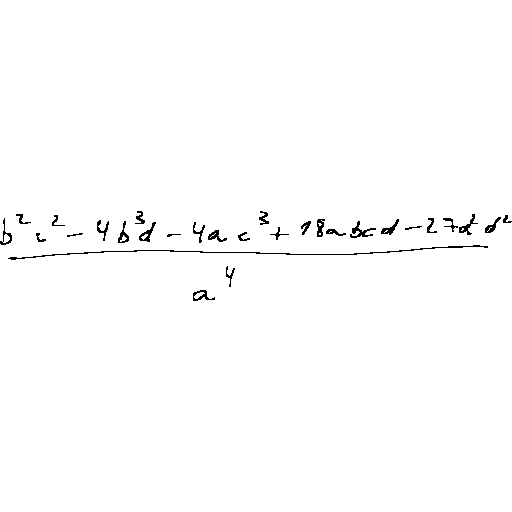 \frac{b^2 c^2 - 4b^3 d - 4ac^3 + 18abcd - 27a^2 d^2}{a^4}